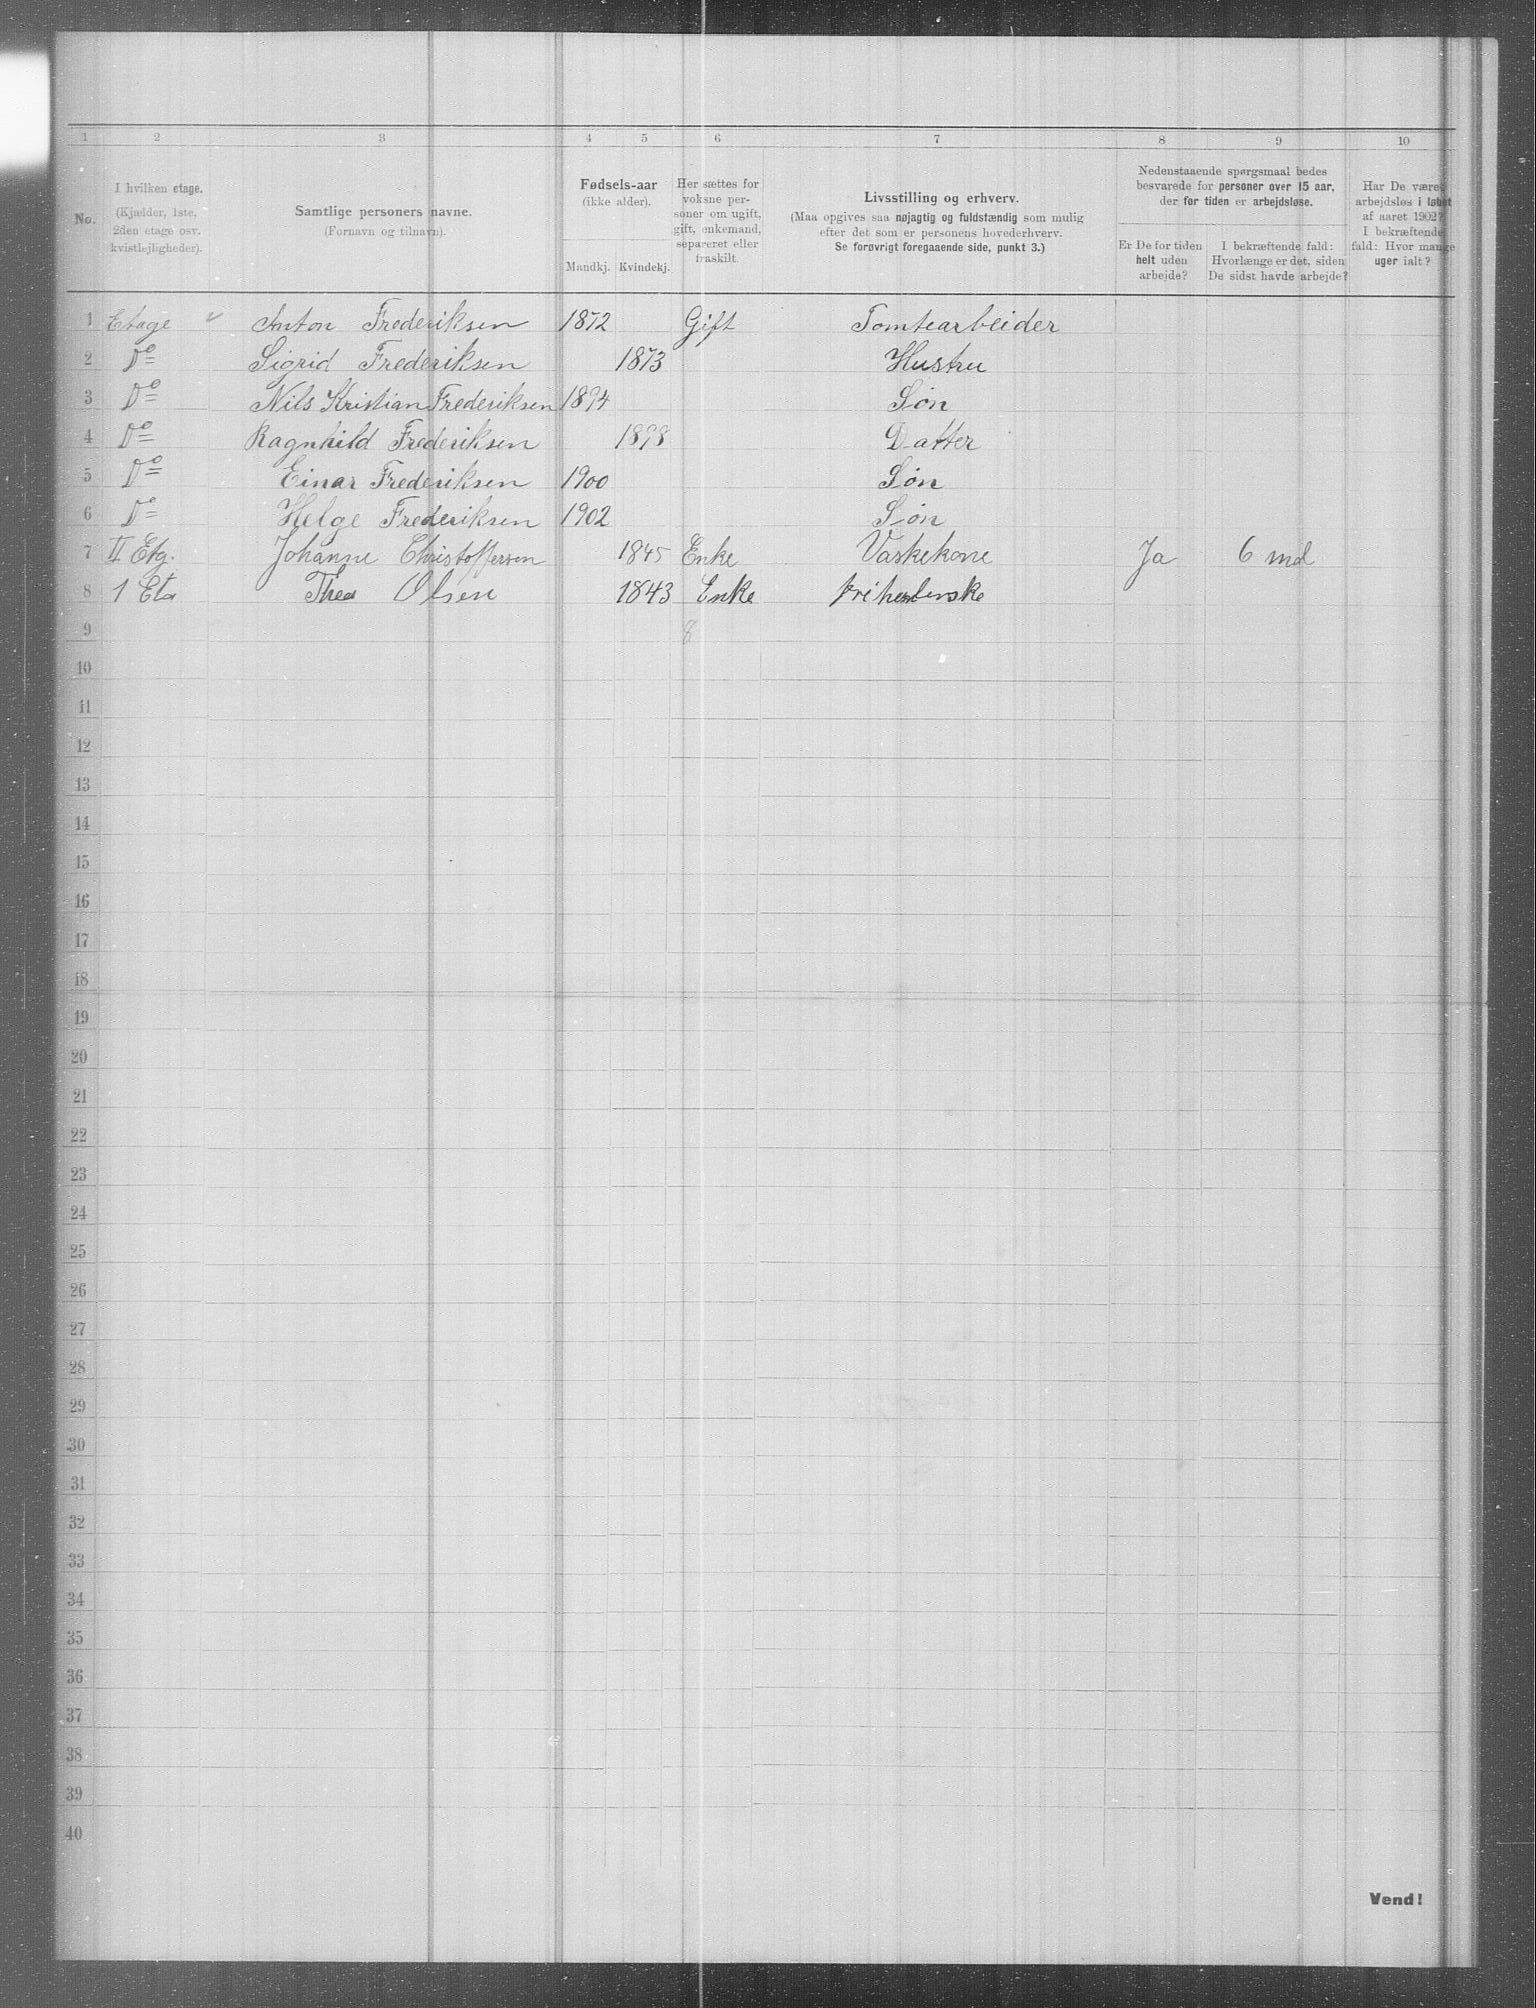 1 2 3 4 5 6 7 8 9 10
No.
I hvilken etage.
(Kjælder, 1ste,
2den etage osv.
kvistlejligheder).
Samtlige personers navne.
(Fornavn og tilnavn).
Fødsels-aar
(ikke alder).
Mandkj. Kvindekj.
Her sættes for
voksne per-
soner om ugift,
gift, enkemand,
separeret eller
fraskilt.
Livsstilling og erhverv.
(Maa opgives saa nøjagtig og fuldstændig som mulig
efter det som er personens hovederhverv.
Se forøvrigt foregaaende side, punkt 3.)
Nedenstaaende spørgsmaal bedes
besvarede for personer over 15 aar,
der for tiden er arbejdsløse.
Er De for tiden
helt uden
arbejde?
I bekræftende fald:
Hvorlænge er det, siden
De sidst havde arbejde?
Har De været
arbejdsløs i løbet
af aaret 1902?
I bekræftende
fald: Hvor mange
uger ialt?
1 Etage Anton Frederiksen 1872 Gift Tomtearbeider
2 Do Sigrid Frederiksen 1873 Hustru
3 Do Nils Kristian Frederiksen 1894 Søn
4 Do Ragnhild Frederiksen 1898 Datter
5 Do Einar Frederiksen 1900 Søn
6 Do Helge Frederiksen 1902 Søn
7 II Etg. Johanne Christoffersen 1845 Enke Vaskekone Ja 6 md
8 1 Eta Thea Olsen 1843 Enke
9 8
10
11
12
13
14
15
16
17
18
19
20
21
22
23
24
25
26
27
28
29
30
31
32
33
34
35
36
37
38
39
40
Vend!